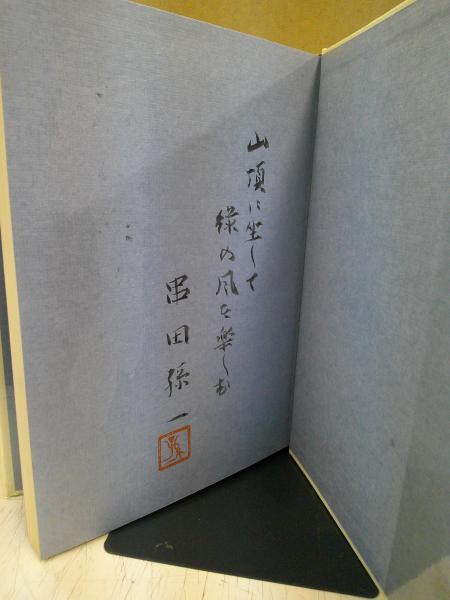 山頂に坐して
緑の風を楽しむ
串田孫一